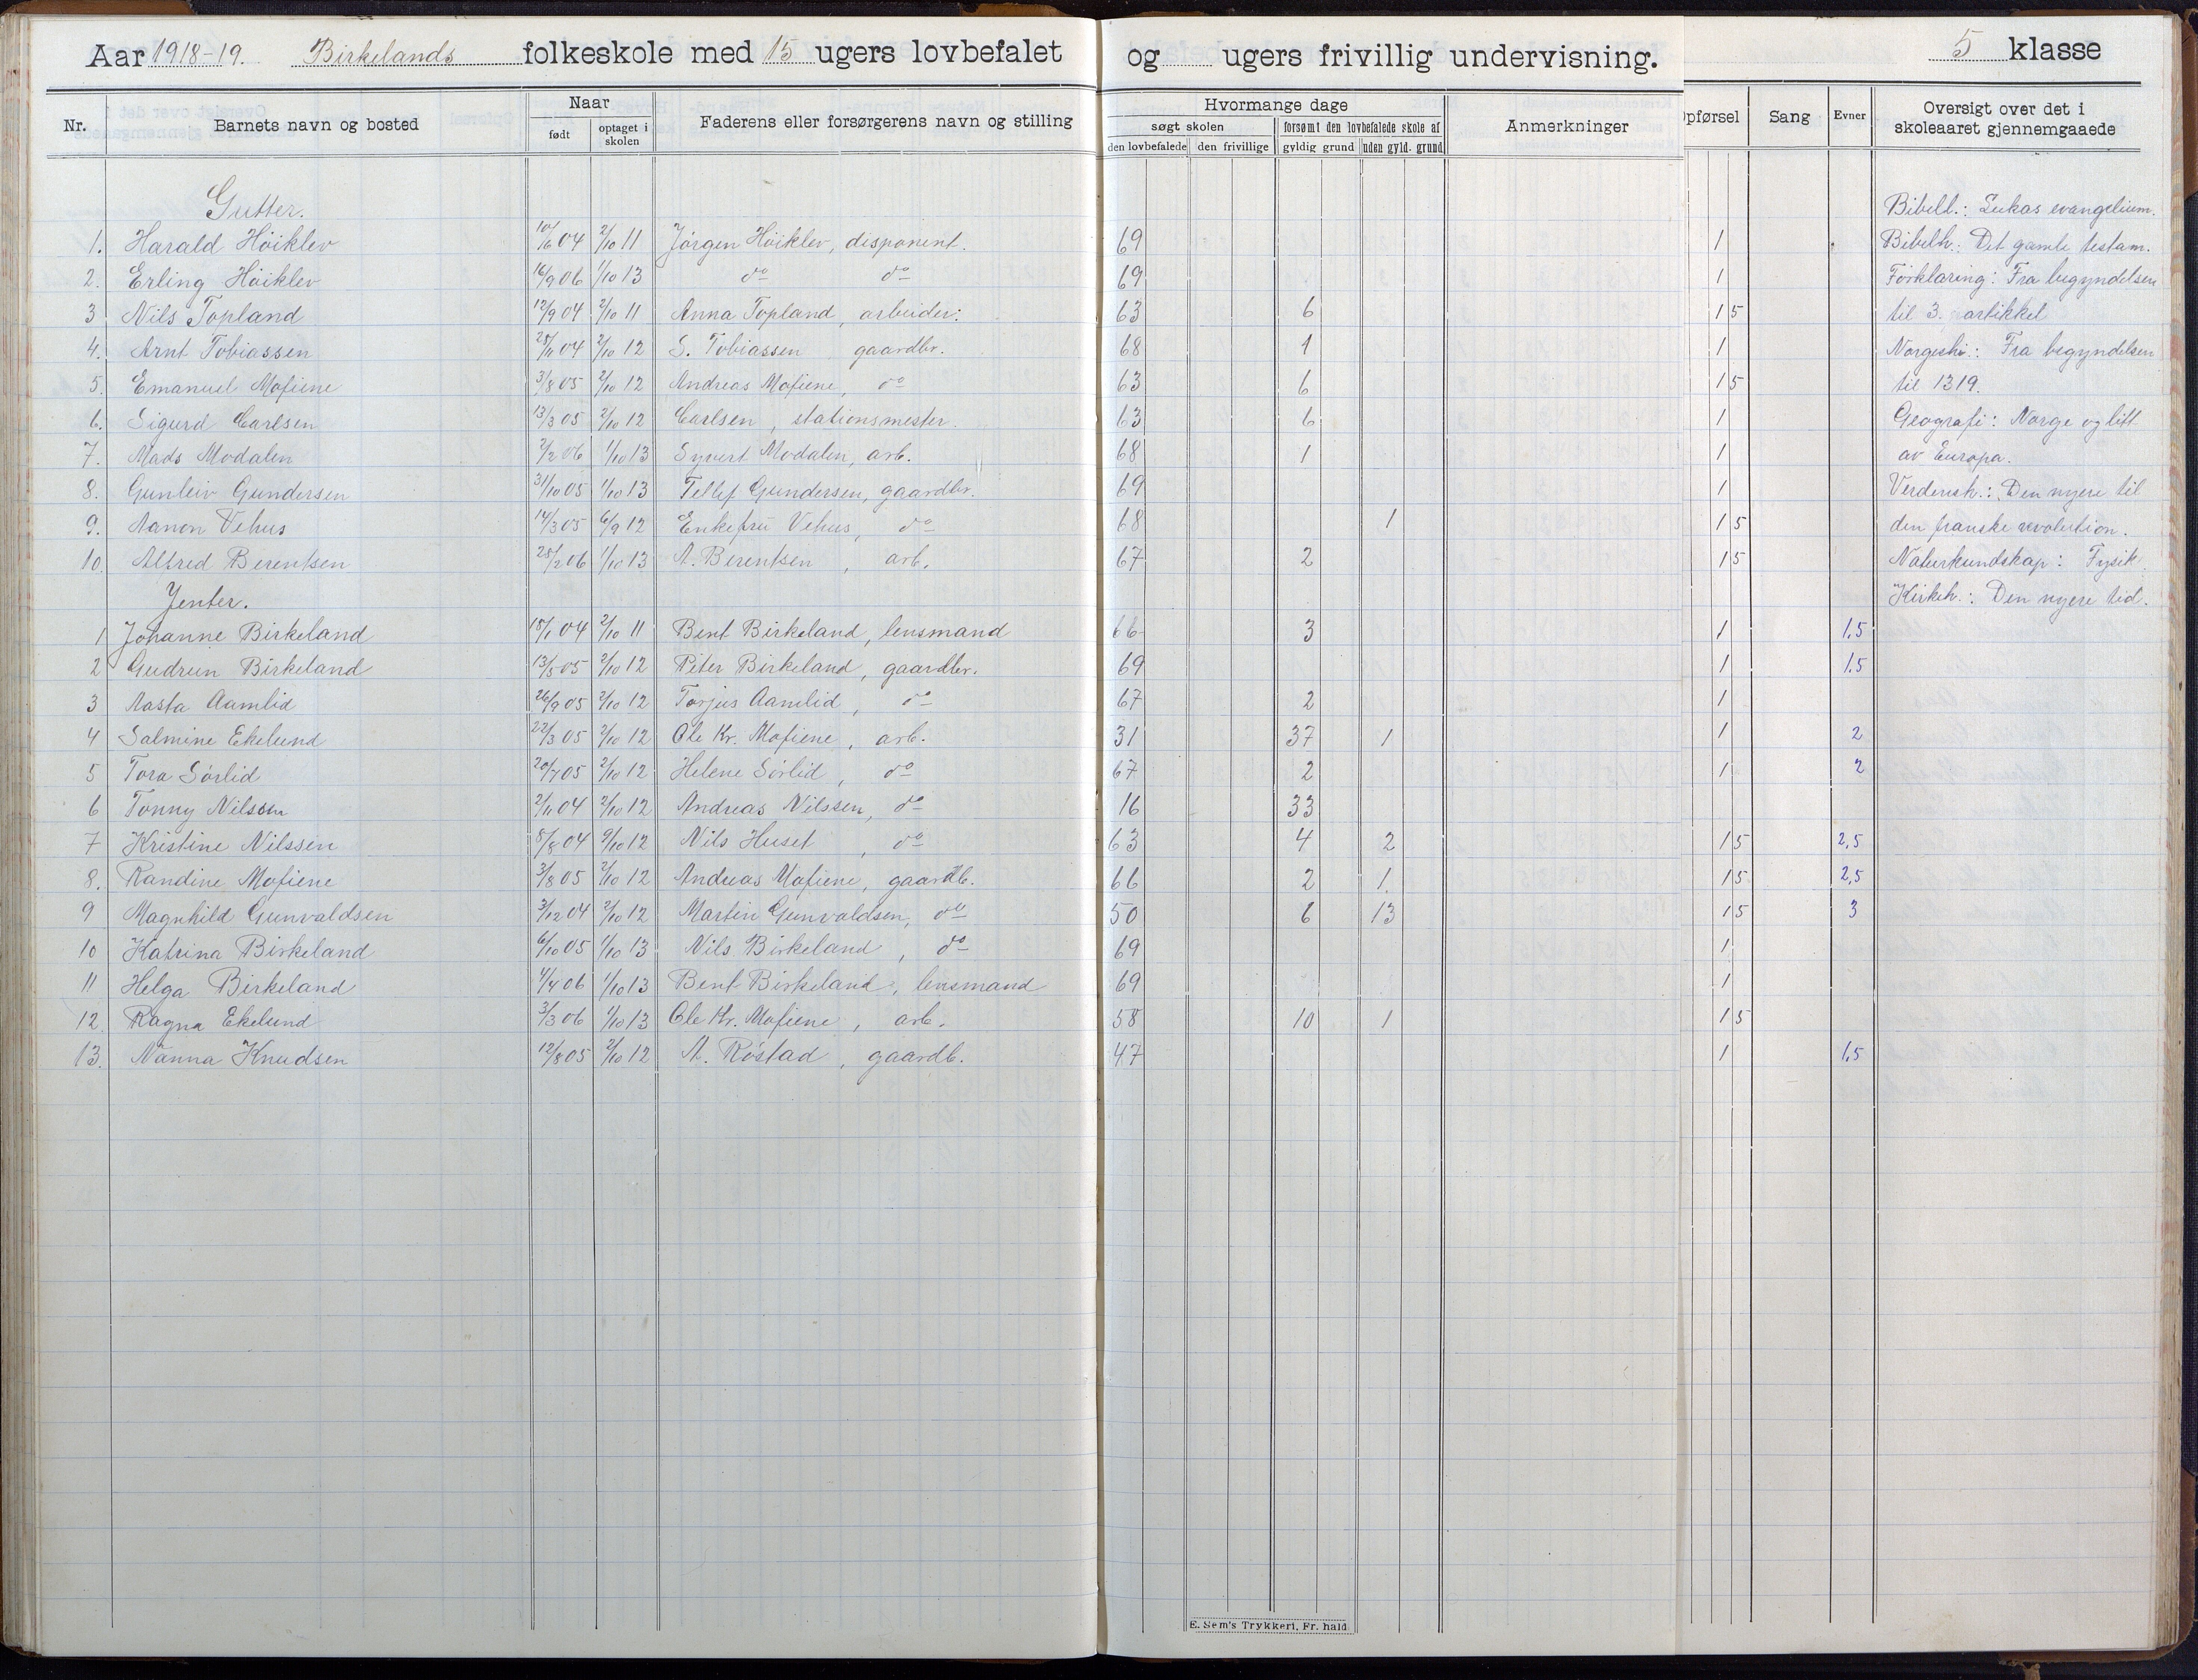 Aar 1918-19. Birkelands folkeskole med 15 ugers lovbefalet og ugers frivillig undervisning. 5 klasse
Nr. Barnets navn og bosted Naar født optaget i skolen Faderens eller forsørgerens navn og stilling Hvormange dage søgt skolen den lovbefalede den frivillige forsømt den lovbefalede skole af gyldig grund uden gyld. grund Anmerkninger Opførsel Sang Evner Oversigt over det i skoleaaret gjennemgaaede
Gutter. Bibell.: Lukas evangelium.
1. Harald Höiklev 10/6 04 2/10 11 Jörgen Höiklev, disponent. 69 1 Bibelh.: Det gamle testam.
2. Erling Höiklev 16/9 06 1/10 13 do do 69 1 Forklaring: Fra begyndelsen
3 Nils Topland 12/9 04 2/10 11 Anna Topland, arbeider: 63 6 1 5 til 3. artikkel
4. Arnt Tobiassen 28/11 04 2/10 12 S. Tobiassen gaardbr. 68 1 1 Norgeshi.: Fra begyndelsen
5. Emanuel Mofiene 3/8 05 2/10 12 Andreas Mofiene, do 63 6 1 5 til 1319.
6. Sigurd Carlsen 13/3 05 2/10 12 Carlsen, stationsmester. 63 6 1 Geografi: Norge og litt
7. Mads Modalen 2/2 06 1/10 13 Syvert Modalen, arb. 68 1 1 av Europa.
8. Gunleiv Gundersen 31/10 05 1/10 13 Tellef Gundersen, gaardbr. 69 1 Verdensh.: Den nyere til
9. Aanon Vehus 14/3 05 6/9 12 Enkefru Vehus, do 68 1 1 5 den franske revolution.
10. Alfred Berentsen 28/2 06 1/10 13 A. Berentsen, arb. 67 2 1 5 Naturkundskap: Fysik.
Jenter. Kirkeh.: Den nyere tid.
1 Johanne Birkeland 18/1 04 2/10 11 Bent Birkeland, lensmand 66 3 1 1,5
2 Gudrun Birkeland 13/5 05 2/10 12 Peter Birkeland, gaardbr. 69 1 1,5
3 Aasta Aamlid 26/9 05 2/10 12 Torjus Aamlid, do 67 2 1
4 Salmine Ekelund 22/3 05 2/10 12 Ole Kr. Mofiene, arb. 31 37 1 1 2
5 Tora Sörlid 20/7 05 2/10 12 Helene Sörlid, do 67 2 1 2
6 Tonny Nilssen 2/11 04 2/10 12 Andreas Nilssen, do 16 33
7 Kristine Nilssen 8/8 04 9/10 12 Nils Huset, do 63 4 2 1 5 2,5
8. Randine Mofiene 3/8 05 2/10 12 Andreas Mofiene, gaardb. 66 2 1 1 5 2,5
9 Magnhild Gunvaldsen 3/12 04 2/10 12 Martin Gunvaldsen, do 50 6 13 1 5 3
10 Katrina Birkeland 6/10 05 1/10 13 Nils Birkeland, do 69 1
11 Helga Birkeland 4/4 06 1/10 13 Bent Birkeland, lensmand 69 1
12. Ragna Ekelund 3/3 06 1/10 13 Ole Kr. Mofiene, arb. 58 10 1 1 5
13. Nanna Knudsen 12/8 05 2/10 12 A. Röstad, gaardb. 47 1 1,5
E. Sem's Trykkeri, Fr.hald